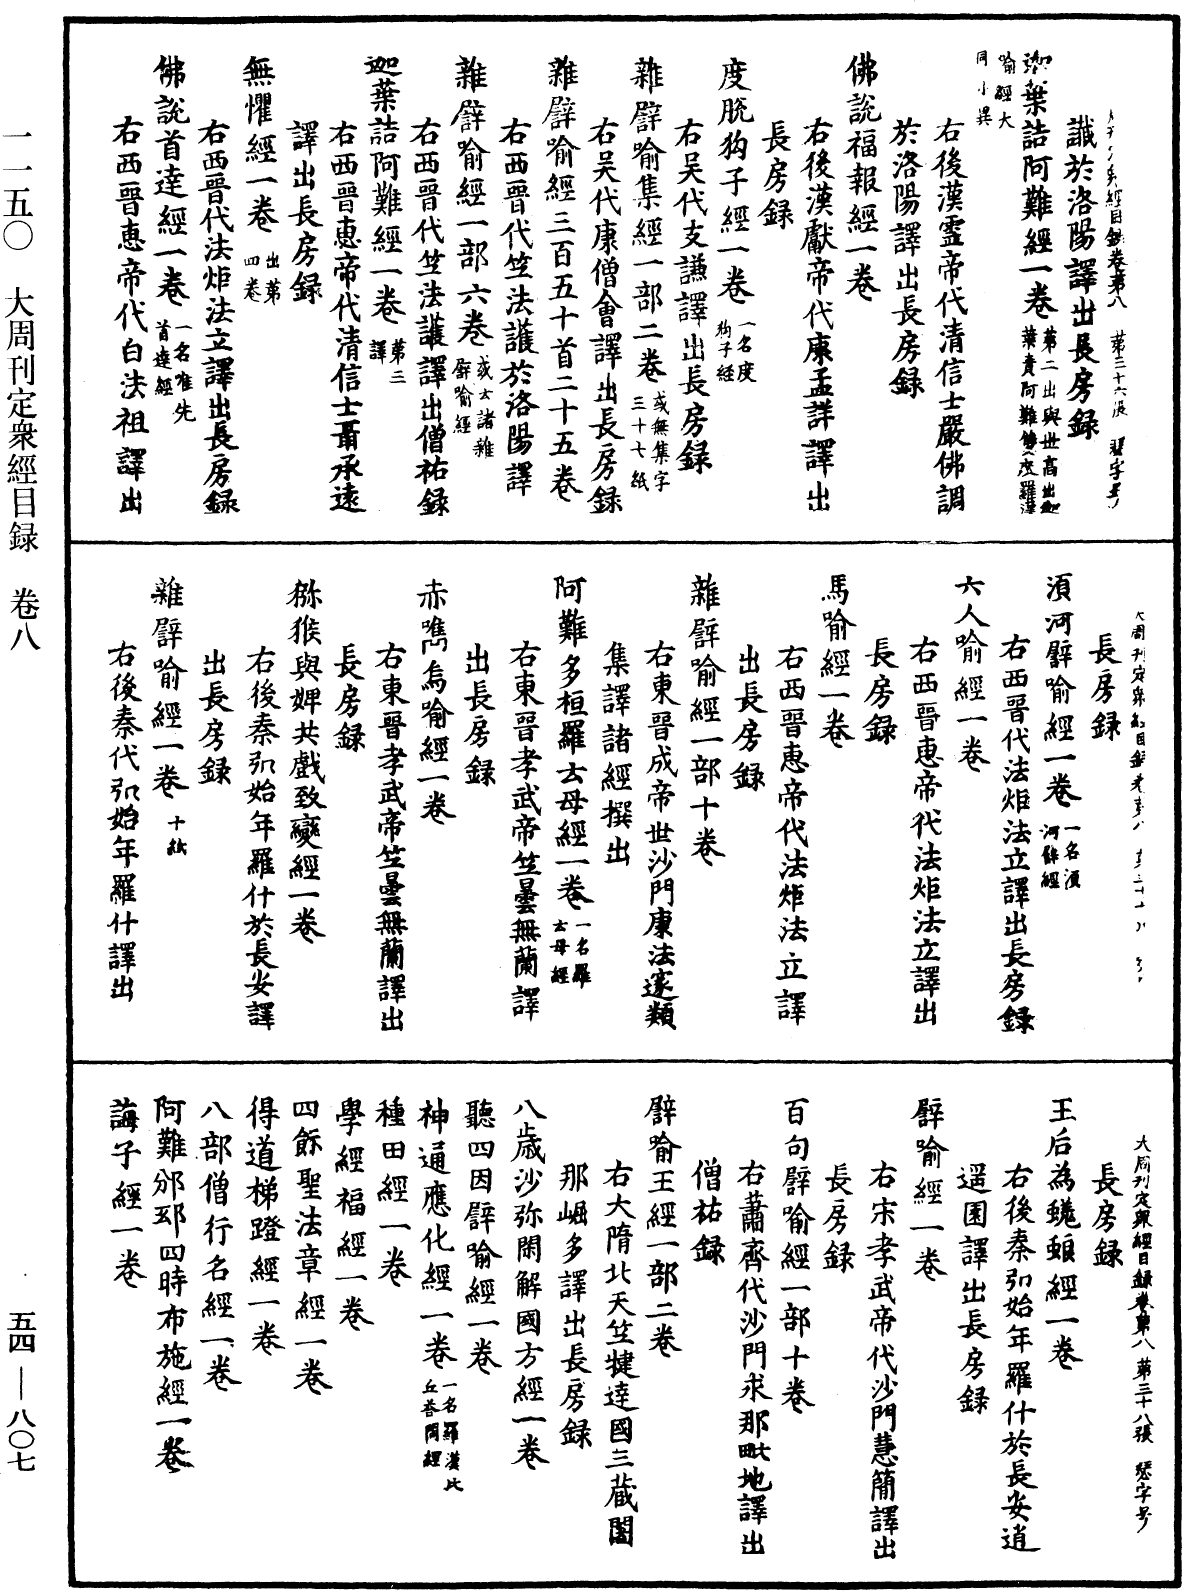 一一五〇　大周刊定衆經目録　卷八
五四—八〇七
經目録卷第八　第三十六張
讖於洛陽譯出長房録
迦葉詰阿難經一卷 第二出與世高出迦
葉責阿難雙度羅漢
喻經大
同小異
右後漢靈帝代清信士嚴佛調
於洛陽譯出長房録
佛說福報經一卷
右後漢獻帝代康孟詳譯出
長房録
度脫狗子經一卷 一名度
狗子經
右吳代支謙譯出長房録
雜譬喻集經一部二卷 或無集字
三十七紙
右吳代康僧會譯出長房録
雜譬喻經三百五十首二十五卷
右西晉代竺法護於洛陽譯
雜譬喻經一部六卷 或云諸雜
譬喻經
右西晉代竺法護譯出僧祐録
迦葉詰阿難經一卷 第三
譯
右西晉惠帝代清信士聶承遠
譯出長房録
無懼經一卷 出第
四卷
右西晉代法炬法立譯出長房録
佛說首達經一卷 一名維先
首達經
右西晉惠帝代白法祖譯出
大周刊定衆經目録卷第八
長房録
湏河譬喻經一卷 一名湏
河譬經
右西晉代法炬法立譯出長房録
六人喻經一卷
右西晉惠帝代法炬法立譯出
長房録
馬喻經一卷
右西晉惠帝代法炬法立譯
出長房録
雜譬喻經一部十卷
右東晉成帝世沙門康法邃類
集譯諸經撰出
阿難多桓羅云母經一卷 一名羅
云母經
右東晉孝武帝竺曇無蘭譯
出長房録
赤嘴烏喻經一卷
右東晉孝武帝竺曇無蘭譯出
長房録
猕猴與婢共戲致變經一卷
右後秦弘始年羅什於長安譯
出長房録
雜譬喻經一卷 十紙
右後秦代弘始年羅什譯出
大周刊定衆經目録卷第八　第三十八張　瑟字号
長房録
王后為蜣蜋經一卷
右後秦弘始年羅什於長安逍
遥園譯出長房録
譬喻經一卷
右宋孝武帝代沙門慧簡譯出
長房録
百句譬喻經一部十卷
右蕭齊代沙門求那毗地譯出
僧祐録
譬喻王經一部二卷
右大隋北天竺揵達國三藏闍
那崛多譯出長房録
八歳沙弥開解國方經一卷
聽四因譬喻經一卷
神通應化經一卷 一名羅漢比
丘荅問經
種田經一卷
學經福經一卷
四餘聖法章經一卷
得道梯蹬經一卷
八部僧行名經一卷
阿難邠邳四時布施經一卷
誨子經一卷